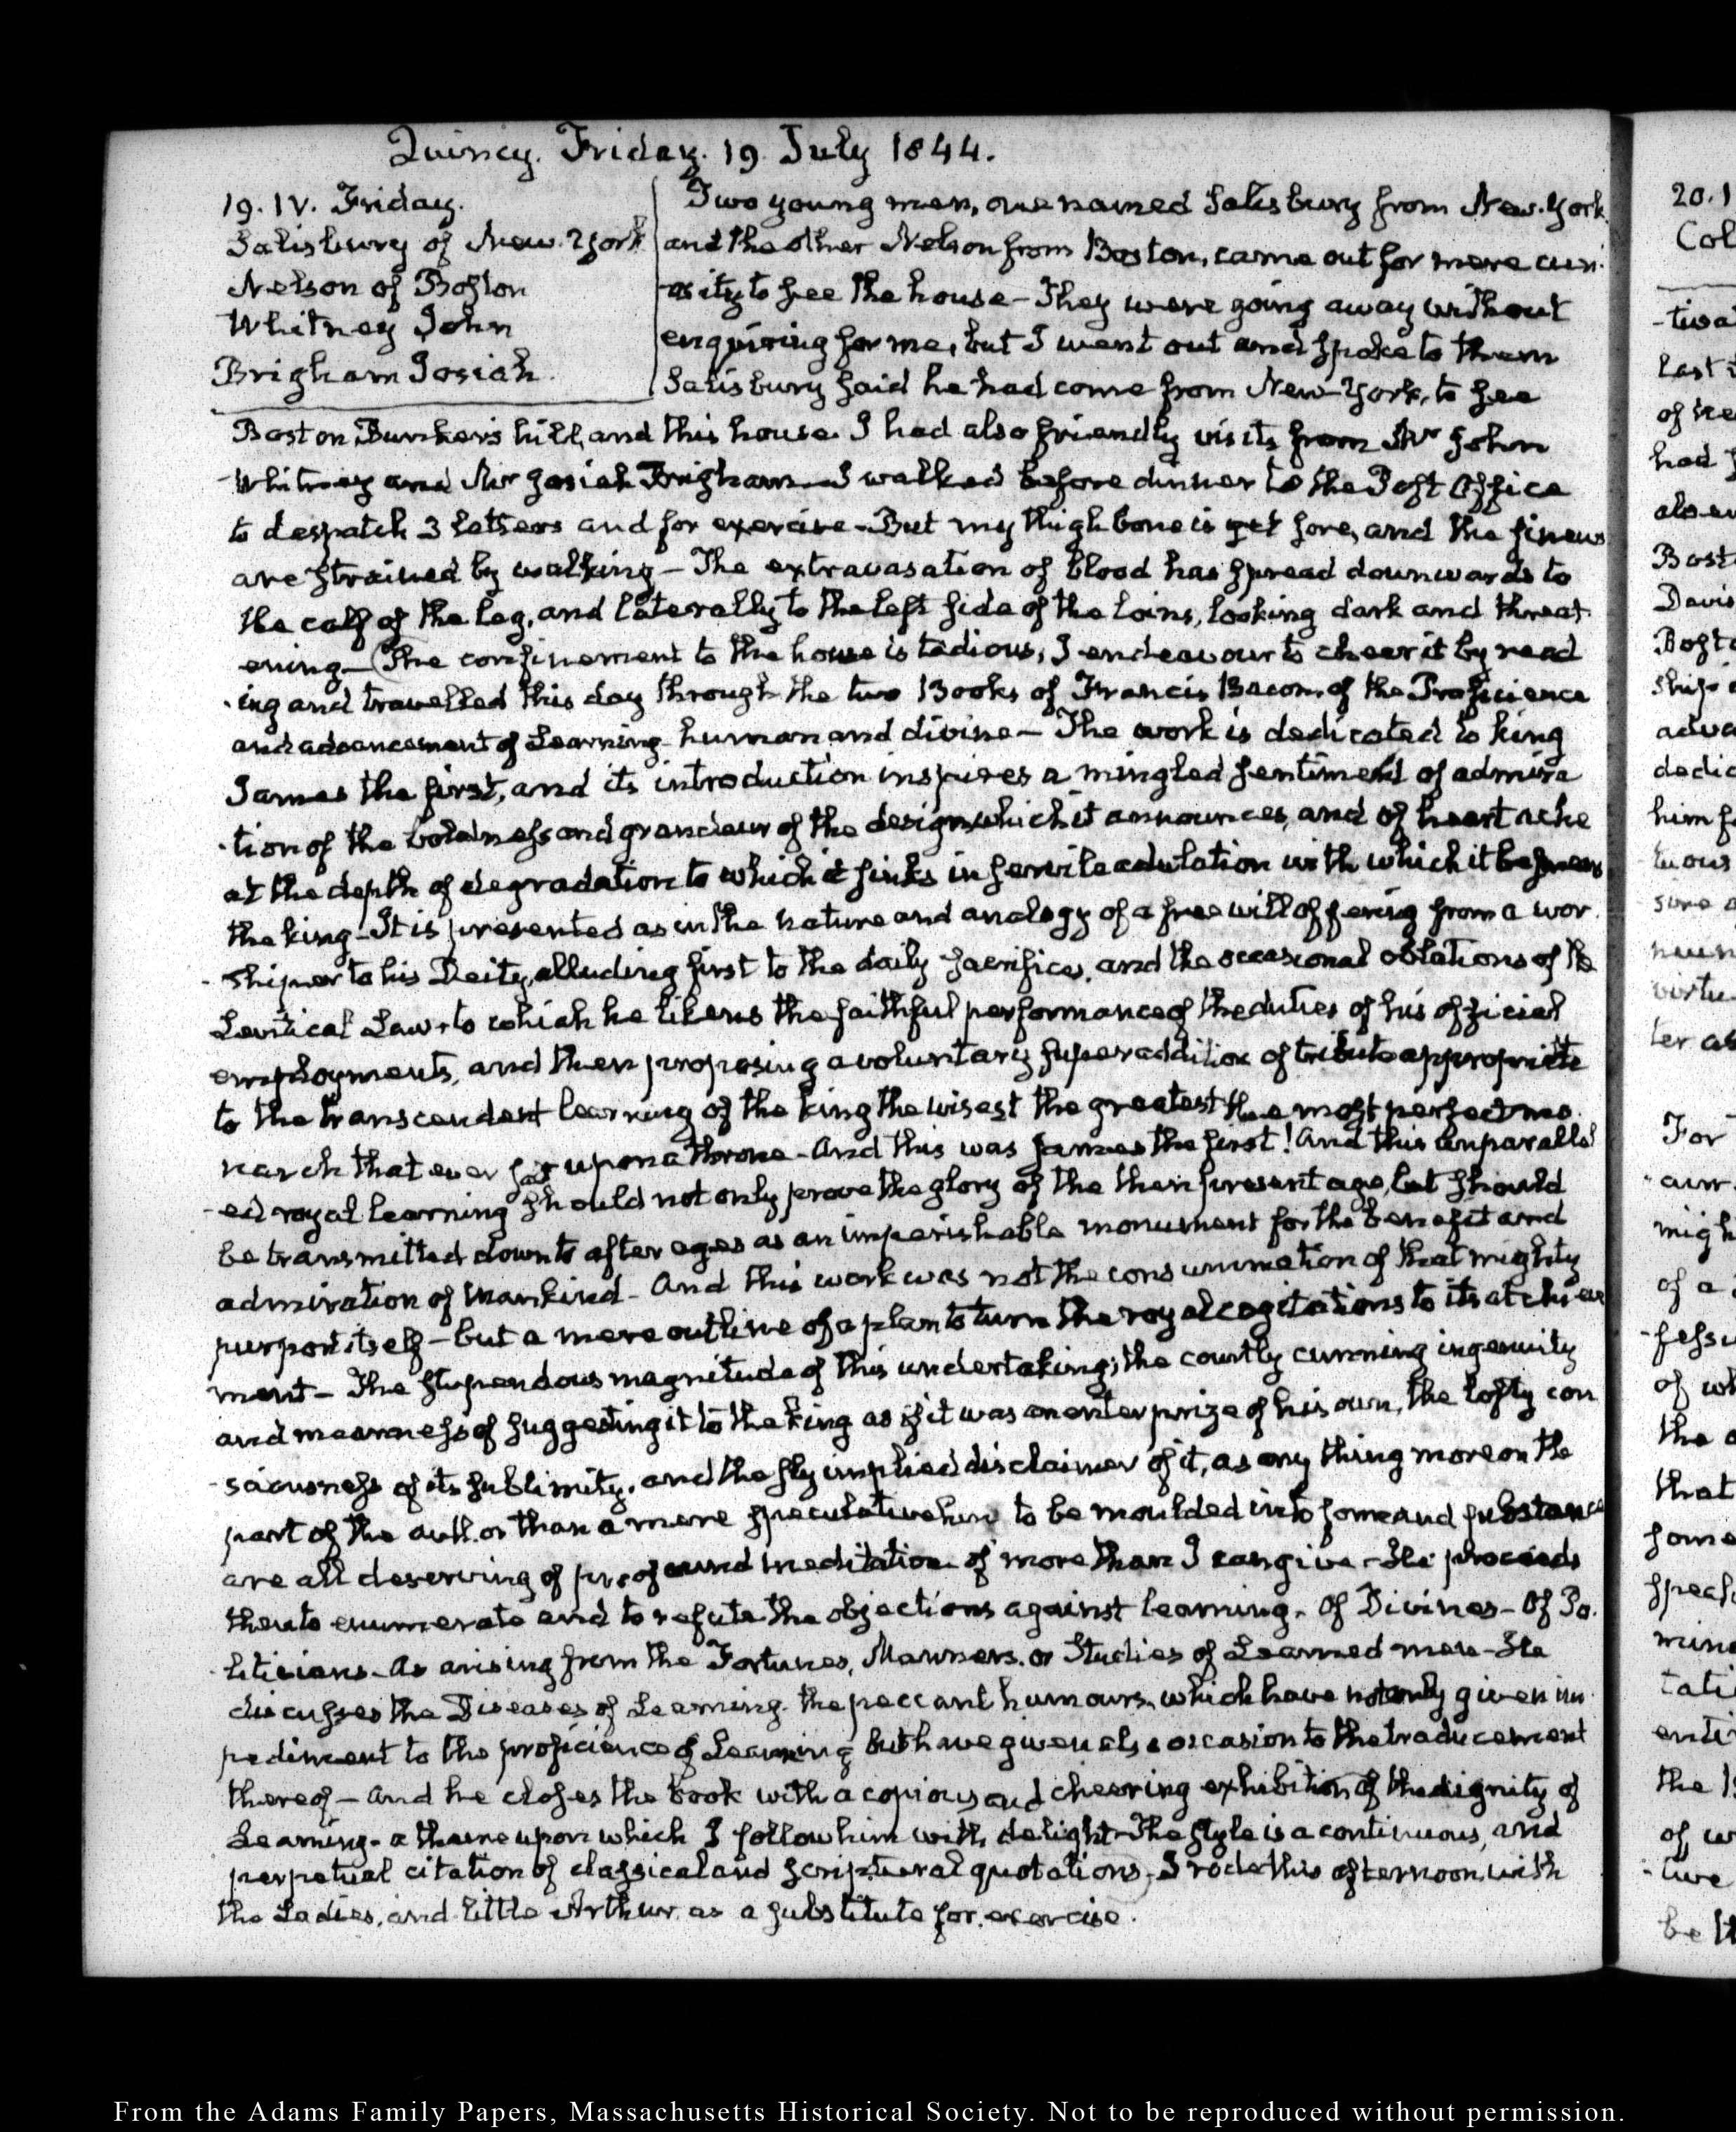 Quincy. Friday. 19. July 1844.
19. IV. Friday.
Salisbury of New-York
Nelson of Boston
Whitney John
Brigham Josiah.
Two young men, one named Salisbury from New-York
and the other Nelson from Boston, came out for mere curi-
-osity to see the house — They were going away without
enquiring for me, but I went out and spoke to them
Salisbury said he had come from New-York, to see
Boston, Bunker's hill, and this house. I had also friendly visits from Mr John
Whitney and Mr Josiah Brigham — I walked before dinner to the Post Office
to despatch 3 letters and for exercise — But my thigh bone is yet sore, and the sinews
are strained by walking — The extravasation of blood has spread downwards to
the calf of the leg, and laterally to the left side of the loins, looking dark and threat-
ening — (The confinement to the house is tedious, I endeavour to cheer it by read
-ing and travelled this day through the two Books of Francis Bacon, of the Proficience
and advancement of Learning human and divine — The work is dedicated to king
James the first, and its introduction inspires a mingled sentiment of admira
-tion of the boldness and grandeur of the design which it announces, and of heart ache
at the depth of degradation to which it sinks in servile adulation with which it besmears
the king — It is presented as in the nature and analogy of a free will offering from a wor-
-shiper to his Deity, alluding first to the daily sacrifice, and the occasional oblations of the
Levitical Law, to which he likens the faithful performance of the duties of his official
employments, and then proposing a voluntary superaddition of tribute appropriate
to the transcendent learning of the king the wisest the greatest the most perfect mo-
narch that ever sat upon a throne — And this was James the first! And this unparallel
-ed royal learning should not only prove the glory of the then present age, but should
be transmitted down to after ages as an imperishable monument for the benefit and
admiration of mankind — And this work was not the consummation of that mighty
purport itself — but a mere outline of a plan to turn the royal cogitations to its atchieve
ment — The stupendous magnitude of this undertaking; the courtly cunning ingenuity
and meanness of suggesting it to the king as if it was an enterprize of his own, the lofty con
-sciousness of its sublimity, and the sly implied disclaimer of it, as any thing more on the
part of the author than a mere speculative to be moulded into form and substance
are all deserving of profound meditation of more than I can give — He proceeds
then to enumerate and to refute the objections against learning. Of Divines — Of Po-
liticians — As arising from the Fortunes, Manners, or Studies of Learned men — He
discusses the Diseases of Learning the peccant humours, which have not only given im-
pediment to the proficience of Learning but have given also occasion to the traducement
thereof — And he closes the book with a copious and cheering exhibition of the dignity of
Learning — a theme upon which I follow him with delight — The style is a continuous, and
perpetual citation of classical and scriptural quotations) I rode this afternoon with
the Ladies, and little Arthur, as a substitute for exercise.
20. 1
Col
-tua
last
of
had
Bost
Davis
Bosto
ship
adva
dedic
him
tuous
sure
virtu
ter as
For
migh
of a
of wh
the
that
some
mind
tati
enti
the
of
be
From the Adams Family Papers, Massachusetts Historical Society. Not to be reproduced without permission.